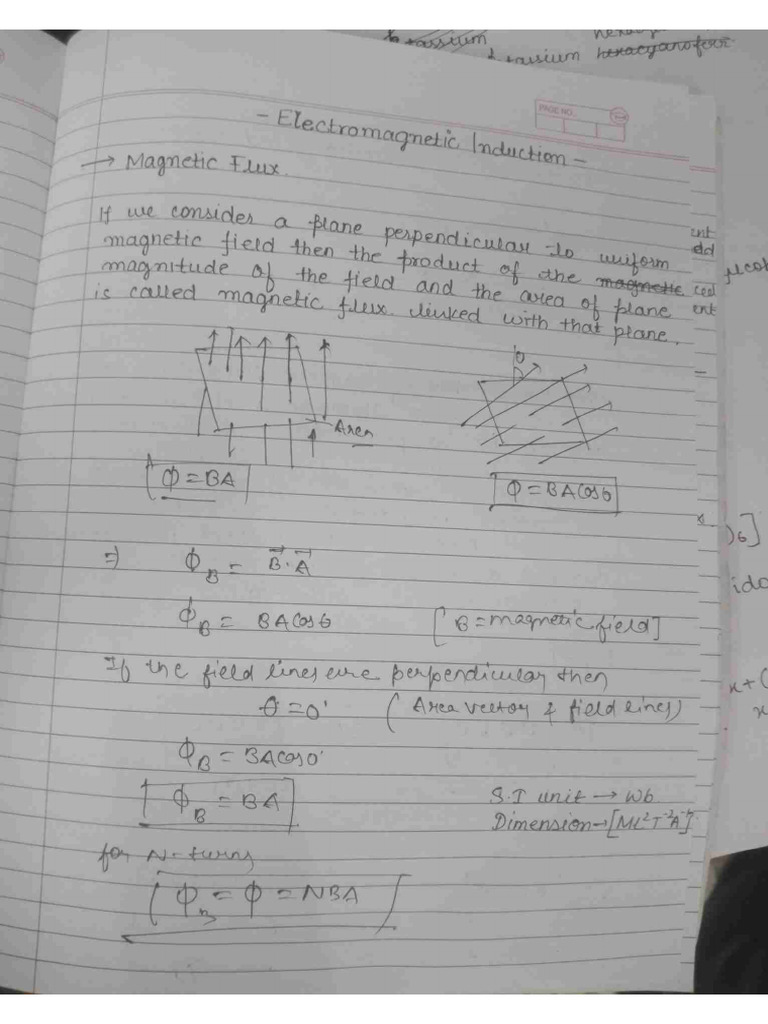 to tassium
hexacy
tassium hexacyanoferr
PAGE NO.
- Electromagnetic Induction -
→ Magnetic Flux.
If we considers a plane perpendicular to uniform
magnetic field then the product of the magnetic
magnitude of the field and the area of plane
is called magnetic flux linked with that plane.
θ
Area
Φ = BA
Φ = BA Cosθ
⇒ Φ_B = B⃗·A⃗
Φ_B = BA Cosθ [B = magnetic field]
If the field lines are perpendicular then
θ = 0° (Area vector & field lines)
Φ_B = BA cos0°
Φ_B = BA
S.I unit → Wb
Dimension → [ML²T⁻²A⁻¹]
for N-turns
Φ_B = Φ = NBA